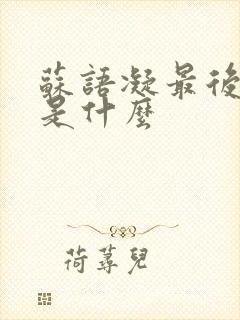 蘇語凝最後
是什麼
荷蕁兒